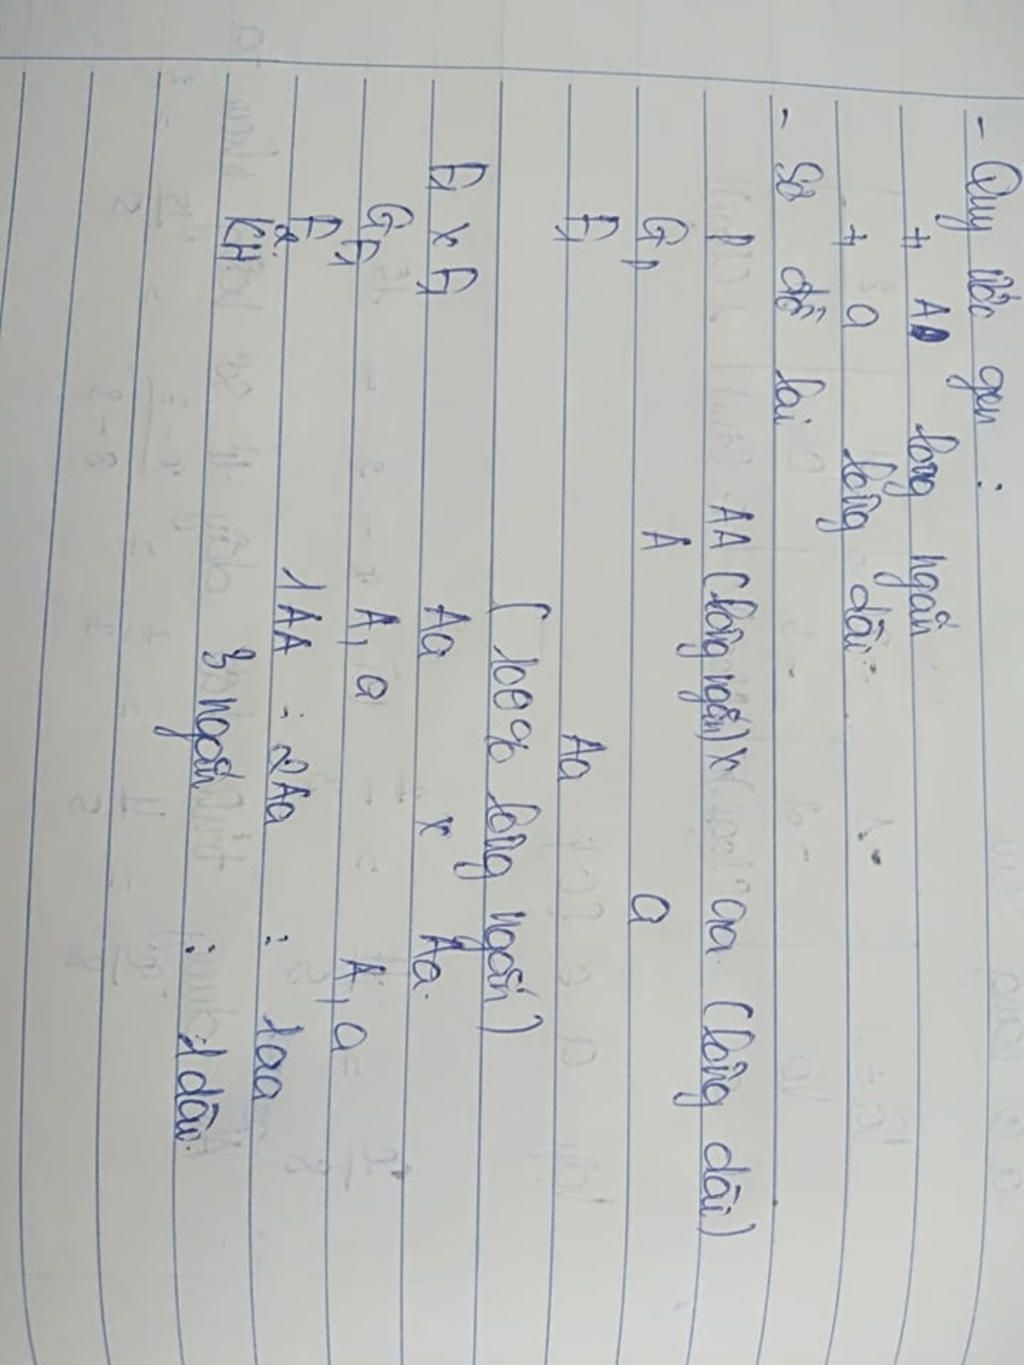 - Quy ước gen :
+ A lông ngắn
+ a lông dài
- Sơ đồ lai
P AA (lông ngắn) x aa (lông dài)
Gp A a
F1 Aa
(100% lông ngắn)
F1 x F1 Aa x Aa.
GF1 A, a A, a
F2: 1AA : 2Aa : 1aa
KH 3 ngắn : 1 dài.